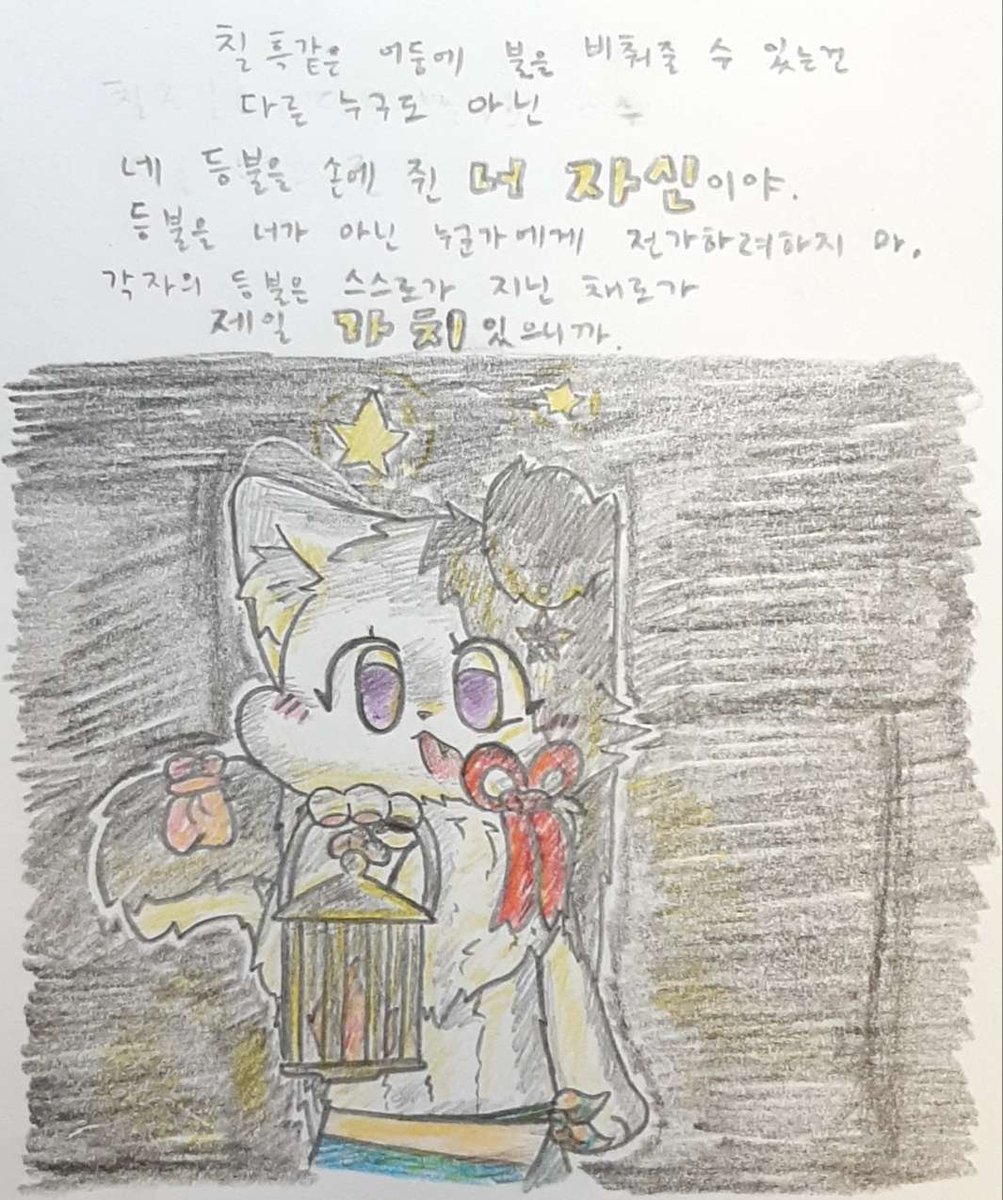 칠흑같은 어둠에 불을 비춰줄 수 있는건
다른 누구도 아닌
네 등불을 손에 쥔 너 자신이야.
등불을 너가 아닌 누군가에게 전가하려하지 마.
각자의 등불은 스스로가 지닌 채로가
제일 가치있으니까.